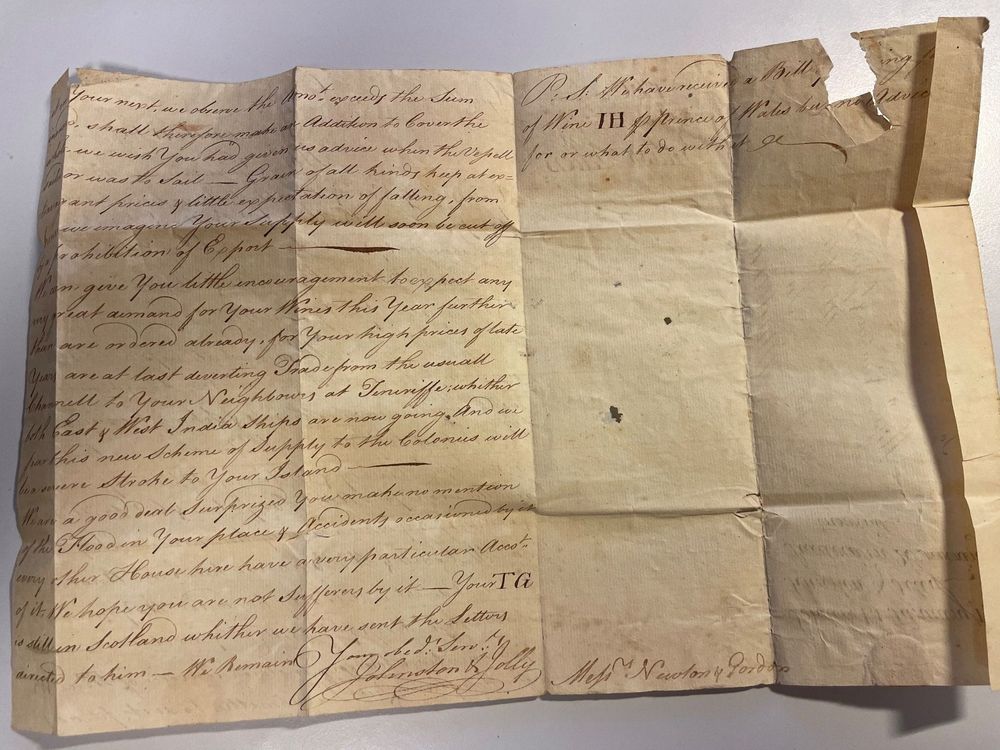 Your next, we observe the Amot. exceeds the Sum
shall therefore make an Addition to Cover the
we wish You had given us advice when the Vessell
or was to Sail — Grain of all kinds keep at ex=
prices & little expectation of falling, from
we imagine Your Supply will soon be cut off
prohibition of Export —
We can give You little encouragement to expect any
great demand for Your Wines this Year further
than are ordered already, for Your high prices of late
Years are at last diverting Trade from the usuall
Channell to Your Neighbours at Teneriffe; whither
both East & West India Ships are now going, And we
this new Scheme of Supply to the Colonies will
be a severe Stroke to Your Island —
We are a good deal Surprized You make no mention
of the Flood in Your place & Accidents occasioned by it
every other House here have a very particular Accot.
of it. We hope you are not Sufferers by it — Your TG
is still in Scotland whither we have sent the Letters
directed to him — We Remain
Your obedt. Servts.
Johnston & Jolly
P. S. We have received a Bill
of Wine IH p Prince of Wales but no Advice
for or what to do with it &c
Messrs Newton & Gordon